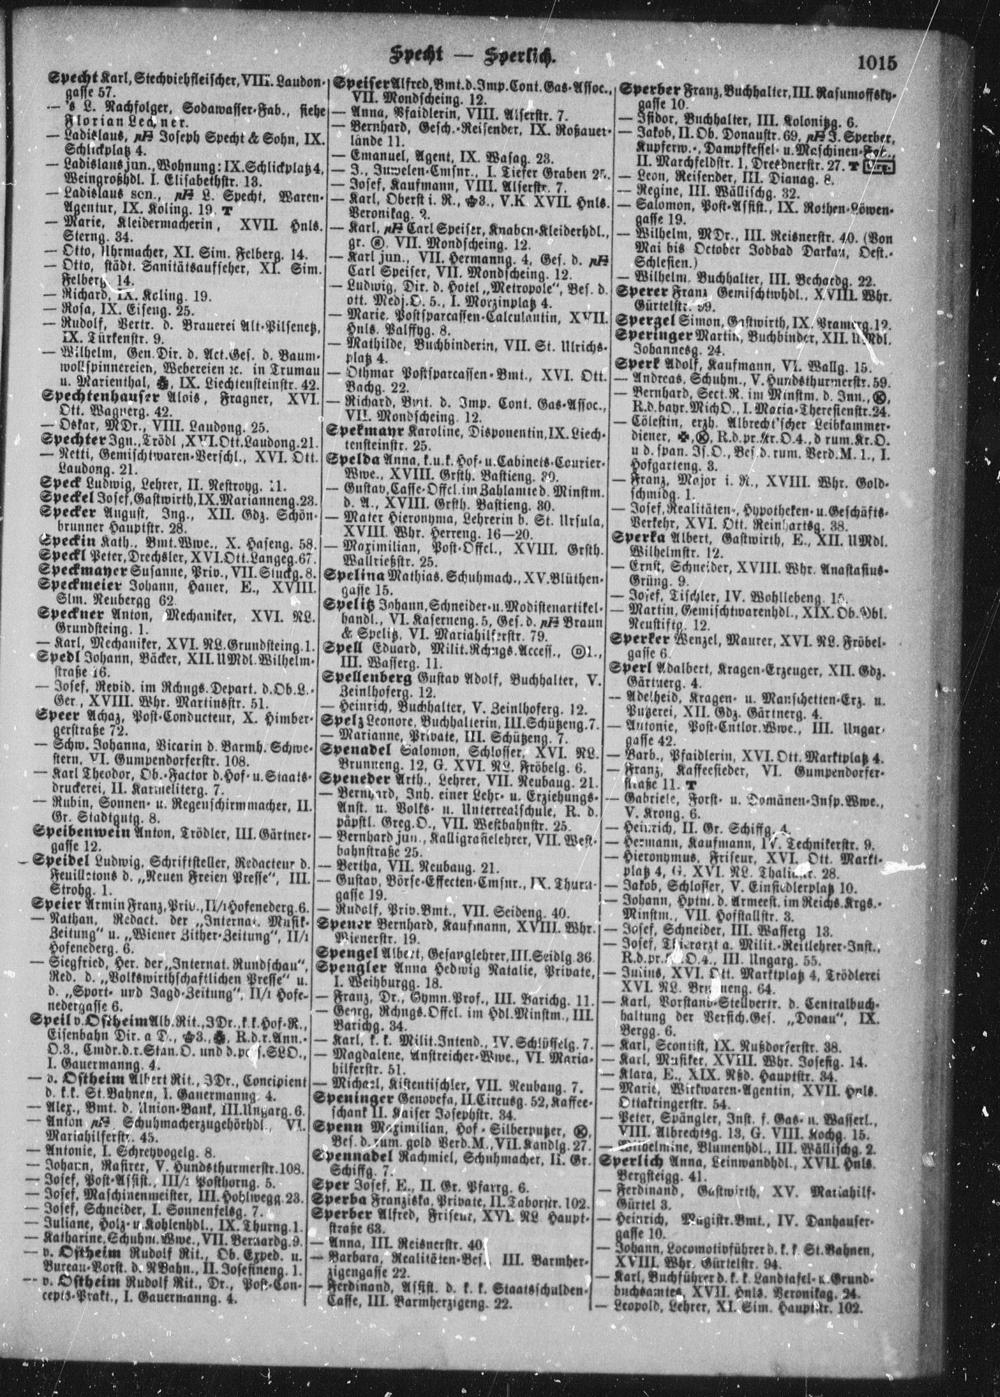 Specht — Sperlich.
1015
Specht Karl, Stechviehfleischer, VIII. Laudon-
gasse 57.
— 's L. Nachfolger, Sodawasser-Fab., siehe
Florian Lechner.
— Ladislaus, Joseph Specht & Sohn, IX.
Schlickplatz 4.
— Ladislaus jun., Wohnung: IX. Schlickplatz 4,
Weingroßhdl. I. Elisabethstr. 13.
— Ladislaus sen., L. Specht, Waren-
Agentur, IX. Koling. 19.
— Marie, Kleidermacherin, XVII. Hnls.
Sterng. 34.
— Otto, Uhrmacher, XI. Sim. Felberg. 14.
— Otto, städt. Sanitätsaufseher, XI. Sim.
Felberg. 14.
— Richard, IX. Koling. 19.
— Rosa, IX. Eiseng. 25.
— Rudolf, Vertr. d. Brauerei Alt-Pilsenetz,
IX. Türkenstr. 9.
— Wilhelm, Gen. Dir. d. Act. Ges. d. Baum-
wollspinnereien, Webereien ꝛc. in Trumau
u. Marienthal, IX. Liechtensteinstr. 42.
Spechtenhauser Alois, Fragner, XVI.
Ott. Wagnerg. 42.
— Oskar, MDr., VIII. Laudong. 25.
Spechter Ign., Trödl., XVI. Ott. Laudong. 21.
— Netti, Gemischtwaren-Verschl., XVI. Ott.
Laudong. 21.
Speck Ludwig, Lehrer, II. Nestroyg. 11.
Speckel Josef, Gastwirth, IX. Marianneng. 23.
Specker August, Ing., XII. Gdz. Schön-
brunner Hauptstr. 28.
Speckin Kath., Bmt. Wwe., X. Haseng. 58.
Speckl Peter, Drechsler, XVI. Ott. Langeg. 67.
Speckmayer Susanne, Priv., VII. Stuckg. 8.
Speckmeier Johann, Hauer, E., XVIII.
Slm. Neubergg. 62.
Speckner Anton, Mechaniker, XVI. NL.
Grundsteing. 1.
— Karl, Mechaniker, XVI. NL. Grundsteing. 1.
Spedl Johann, Bäcker, XII. UMdl. Wilhelm-
straße 16.
— Josef, Revid. im Rchngs. Depart. d. Ob. L.-
Ger., XVIII. Whr. Martinsstr. 51.
Speer Achaz, Post-Conducteur, X. Himber-
gerstraße 72.
— Schw. Johanna, Vicarin d. Barmh. Schwe-
stern, VI. Gumpendorferstr. 108.
— Karl Theodor, Ob.-Factor d. Hof- u. Staats-
druckerei, II. Karmeliterg. 7.
— Rubin, Sonnen- u. Regenschirmmacher, II.
Gr. Stadtgutg. 8.
Speibenwein Anton, Trödler, III. Gärtner-
gasse 12.
Speidel Ludwig, Schriftsteller, Redacteur d.
Feuilletons d. „Neuen Freien Presse“, III.
Strohg. 1.
Speier Armin Franz, Priv., II/1 Hofenederg. 6.
— Nathan, Redact. der „Internat. Musik-
Zeitung“ u. „Wiener Zither-Zeitung“, II/1
Hofenederg. 6.
— Siegfried, Her. der „Internat. Rundschau“,
Red. d. „Volkswirthschaftlichen Presse“ u.
d. „Sport- und Jagd-Zeitung“, II/1 Hofe-
nedergasse 6.
Speil v. Ostheim Alb. Rit., JDr., k. k. Hof-R.,
Eisenbahn Dir. a. D., 3., R. d. r. Ann.-
O. 3., Cmdr. d. r. Stan. O. und d. SLO.,
I. Gauermanng. 4.
— v. Ostheim Albert Rit., JDr., Concipient
d. k. k. St. Bahnen, I. Gauermanng. 4.
— Alex., Bmt. d. Union-Bank, III. Ungarg. 6.
— Anton, Schuhmacherzugehörhdl., VI.
Mariahilferstr. 45.
— Antonie, I. Schreyvogelg. 8.
— Johann, Rasirer, V. Hundsthurmerstr. 108.
— Josef, Post-Assist., III/1 Posthorng. 5.
— Josef, Maschinenmeister, III. Hohlwegg. 23.
— Josef, Schneider, I. Sonnenfelsg. 7.
— Juliane, Holz- u. Kohlenhdl., IX. Thurng. 1.
— Katharine, Schuhm. Wwe., VII. Bernardg. 9.
— v. Ostheim Rudolf Rit., Ob. Exped. u.
Bureau-Vorst. d. NBahn., II. Josefineng. 1.
— v. Ostheim Rudolf Rit., Dr., Post-Con-
cepts-Prakt., I. Gauermanng. 4.
Speiser Alfred, Bmt. d. Imp. Cont. Gas-Assoc.,
VII. Mondscheing. 12.
— Anna, Pfaidlerin, VIII. Alserstr. 7.
— Bernhard, Gesch.-Reisender, IX. Roßauer-
lände 11.
— Emanuel, Agent, IX. Wasag. 23.
— J., Juwelen-Cmsnr., I. Tiefer Graben
— Josef, Kaufmann, VIII. Alserstr. 7.
— Karl, Oberst i. R., 3., V. K. XVII. Hnls.
Veronikag. 2.
— Karl, Carl Speiser, Knaben-Kleiderhdl.,
gr. VII. Mondscheing. 12.
— Karl jun., VII. Hermanng. 4, Ges. d.
Carl Speiser, VII. Mondscheing. 12.
— Ludwig, Dir. d. Hotel „Metropole“, Bes. d.
ott. Medj. O. 5., I. Morzinplatz 4.
— Marie, Postsparcassen-Calculantin, XVII.
Hnls. Palffyg. 8.
— Mathilde, Buchbinderin, VII. St. Ulrichs-
platz 4.
— Othmar Postsparcassen-Bmt., XVI. Ott.
Bachg. 22.
— Richard, Bmt. d. Imp. Cont. Gas-Assoc.,
VII. Mondscheing. 12.
Spekmayr Karoline, Disponentin, IX. Liech-
tensteinstr. 25.
Spelda Anna, k. u. k. Hof- u. Cabinets-Courier-
Wwe., XVIII. Grsth. Bastieng. 30.
— Gustav, Casse-Offcl. im Zahlamte d. Minstm.
d. A., XVIII. Grsth. Bastieng. 30.
— Mater Hieronyma, Lehrerin b. St. Ursula,
XVIII. Whr. Herreng. 16—20.
— Maximilian, Post-Offcl., XVIII. Grsth.
Wallrießstr. 25.
Spelina Mathias, Schuhmach., XV. Blüthen-
gasse 15.
Spelitz Johann, Schneider- u. Modistenartikel-
handl., VI. Kaserneng. 5, Ges. d. Braun
& Spelitz, VI. Mariahilferstr. 79.
Spell Eduard, Milit. Rchngs. Access., D 1.,
III. Wasserg. 11.
Spellenberg Gustav Adolf, Buchhalter, V.
Zeinlhoferg. 12.
— Heinrich, Buchhalter, V. Zeinlhoferg. 12.
Spelz Leonore, Buchhalterin, III. Schützeng. 7.
— Marianne, Private, III. Schützeng. 7.
Spenadel Salomon, Schlosser, XVI. NL.
Brunneng. 12, G. XVI. NL. Fröbelg. 6.
Speneder Arth., Lehrer, VII. Neubaug. 21.
— Bernhard, Inh. einer Lehr- u. Erziehungs-
Anst. u. Volks- u. Unterrealschule, R. d.
päpstl. Greg. O., VII. Westbahnstr. 25.
— Bernhard jun., Kalligrafielehrer, VII. West-
bahnstraße 25.
— Bertha, VII. Neubaug. 21.
— Gustav, Börse-Effecten-Cmsnr., IX. Thurn-
gasse 19.
— Rudolf, Priv. Bmt., VII. Seideng. 40.
Spener Bernhard, Kaufmann, XVIII. Whr.
Wienerstr. 19.
Spengel Albert, Gesanglehrer, III. Seidlg. 36.
Spengler Anna Hedwig Natalie, Private,
I. Weihburgg. 18.
— Franz, Dr., Gymn. Prof., III. Barichg. 11.
— Georg, Rchngs. Offcl. im Hdl. Minstm., III.
Barichg. 34.
— Karl, k. k. Milit. Intend., IV. Schlösselg. 7.
— Magdalene, Anstreicher-Wwe., VI. Maria-
hilferstr. 51.
— Michael, Kistentischler, VII. Neubaug. 7.
Speninger Genovefa, II. Circusg. 52, Kaffee-
schank II. Kaiser Josephstr. 34.
Spenn Maximilian, Hof-Silberputzer,
Bes. d. zum. gold. Verd. M., VII. Kandlg. 27.
Spennadel Rachmiel, Schuhmacher, II. Gr.
Schiffg. 7.
Sper Josef, E., II. Gr. Pfarrg. 6.
Sperba Franziska, Private, II. Taborstr. 102.
Sperber Alfred, Friseur, XVI. NL. Haupt-
straße 63.
— Anna, III. Reisnerstr. 40.
— Barbara, Realitäten-Bes. III. Barmher-
zigengasse 22.
— Ferdinand, Assist. d. k. k. Staatsschulden-
Casse, III. Barmherzigeng. 22.
Sperber Franz, Buchhalter, III. Rasumoffsky-
gasse 10.
— Isidor, Buchhalter, III. Kolonitzg. 6.
— Jakob, II. Ob. Donaustr. 69, J. Sperber,
Kupferw., Dampfkessel- u. Maschinen-Fab.,
II. Marchfeldstr. 1, Dresdnerstr. 27.
— Leon, Reisender, III. Dianag. 8.
— Regine, III. Wällischg. 32.
— Salomon, Post-Assist., IX. Rothen-Löwen-
gasse 19.
— Wilhelm, MDr., III. Reisnerstr. 40. (Von
Mai bis October Jodbad Darkau, Oest.-
Schlesien.)
— Wilhelm, Buchhalter, III. Bechardg. 22.
Sperer Franz, Gemischtwhdl., XVIII. Whr.
Gürtelstr.
Spergel Simon, Gastwirth, IX. Pramerg. 12.
Speringer Martin, Buchbinder, XII. UMdl.
Johannesg. 24.
Sperk Adolf, Kaufmann, VI. Wallg. 15.
— Andreas, Schuhm., V. Hundsthurmerstr. 59.
— Bernhard, Sect. R. im Minstm. d. Inn.,
R. d. bayr. MichO., I. Maria-Theresienstr. 24.
— Cölestin, erzh. Albrecht'scher Leibkammer-
diener, R. d. pr. Kr. O. 4., d. rum. Kr. O.
u. d. span. Is. O., Bes. d. rum. Verd. M. 1., I.
Hofgarteng. 3.
— Franz, Major i. R., XVIII. Whr. Gold-
schmidg. 1.
— Josef, Realitäten-, Hypotheken- u. Geschäfts-
Verkehr, XVI. Ott. Reinhartsg. 38.
Sperka Albert, Gastwirth, E., XII. UMdl.
Wilhelmstr. 12.
— Ernst, Schneider, XVIII. Whr. Anastasius-
Grüng. 9.
— Josef, Tischler, IV. Wohllebeng. 15.
— Martin, Gemischtwarenhdl., XIX. Ob. Dbl.
Neustiftg. 12.
Sperker Wenzel, Maurer, XVI. NL. Fröbel-
gasse 6.
Sperl Adalbert, Kragen-Erzeuger, XII. Gdz.
Gärtnerg. 4.
— Adelheid, Kragen- u. Manschetten-Erz. u.
Putzerei, XII. Gdz. Gärtnerg. 4.
— Antonie, Post-Cntlor. Wwe., III. Ungar-
gasse 42.
— Barb., Pfaidlerin, XVI. Ott. Marktplatz 4.
— Franz, Kaffeesieder, VI. Gumpendorfer-
straße 11.
— Gabriele, Forst- u. Domänen-Insp. Wwe.,
V. Krong. 6.
— Heinrich, II. Gr. Schiffg. 4.
— Hermann, Kaufmann, IV. Technikerstr. 9.
— Hieronymus, Friseur, XVI. Ott. Markt-
platz 4, G. XVI. NL. Thaliastr. 28.
— Jakob, Schlosser, V. Einsiedlerplatz 10.
— Johann, Hptm. d. Armeest. im Reichs. Krgs.-
Minstm., VII. Hofstallstr. 3.
— Josef, Schneider, III. Wasserg. 13.
— Josef, Thierarzt a. Milit.-Reitlehrer-Inst.,
R. d. pr. O. 4., III. Ungarg. 55.
— Julius, XVI. Ott. Marktplatz 4, Trödlerei
XVI. NL. Brunneng. 64.
— Karl, Vorstand-Stellvertr. d. Centralbuch-
haltung der Versich. Ges. „Donau“, IX.
Bergg. 6.
— Karl, Scontist, IX. Nußdorferstr. 38.
— Karl, Musiker, XVIII. Whr. Josefig. 14.
— Klara, E., XIX. Nßd. Hauptstr. 34.
— Marie, Wirkwaren-Agentin, XVII. Hnls.
Ottakringerstr. 54.
— Peter, Spängler, Inst. f. Gas- u. Wasserl.,
VIII. Albrechtsg. 13, G. VIII. Kochg. 15.
— Wilhelmine, Blumenhdl., III. Wällischg. 2.
Sperlich Anna, Leinwandhdl., XVII. Hnls.
Bergsteigg. 41.
— Ferdinand, Gastwirth, XV. Mariahilf-
Gürtel 3.
— Heinrich, Magistr. Bmt., IV. Danhauser-
gasse 10.
— Johann, Locomotivführer d. k. k. St. Bahnen,
XVIII. Whr. Gürtelstr. 94.
— Karl, Buchführer d. k. k. Landtafel- u. Grund-
buchsamtes, XVII. Hnls. Veronikag. 24.
— Leopold, Lehrer, XI. Sim. Hauptstr. 102.